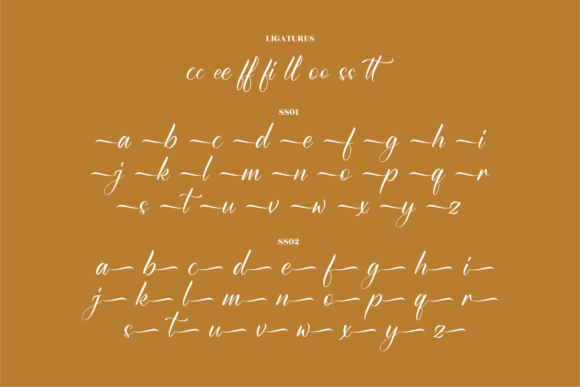 LIGATURES
cc ee ff fi ll oo ss tt
SS01
a b c d e f g h i
j k l m n o p q r
s t u v w x y z
SS02
a b c d e f g h i
j k l m n o p q r
s t u v w x y z